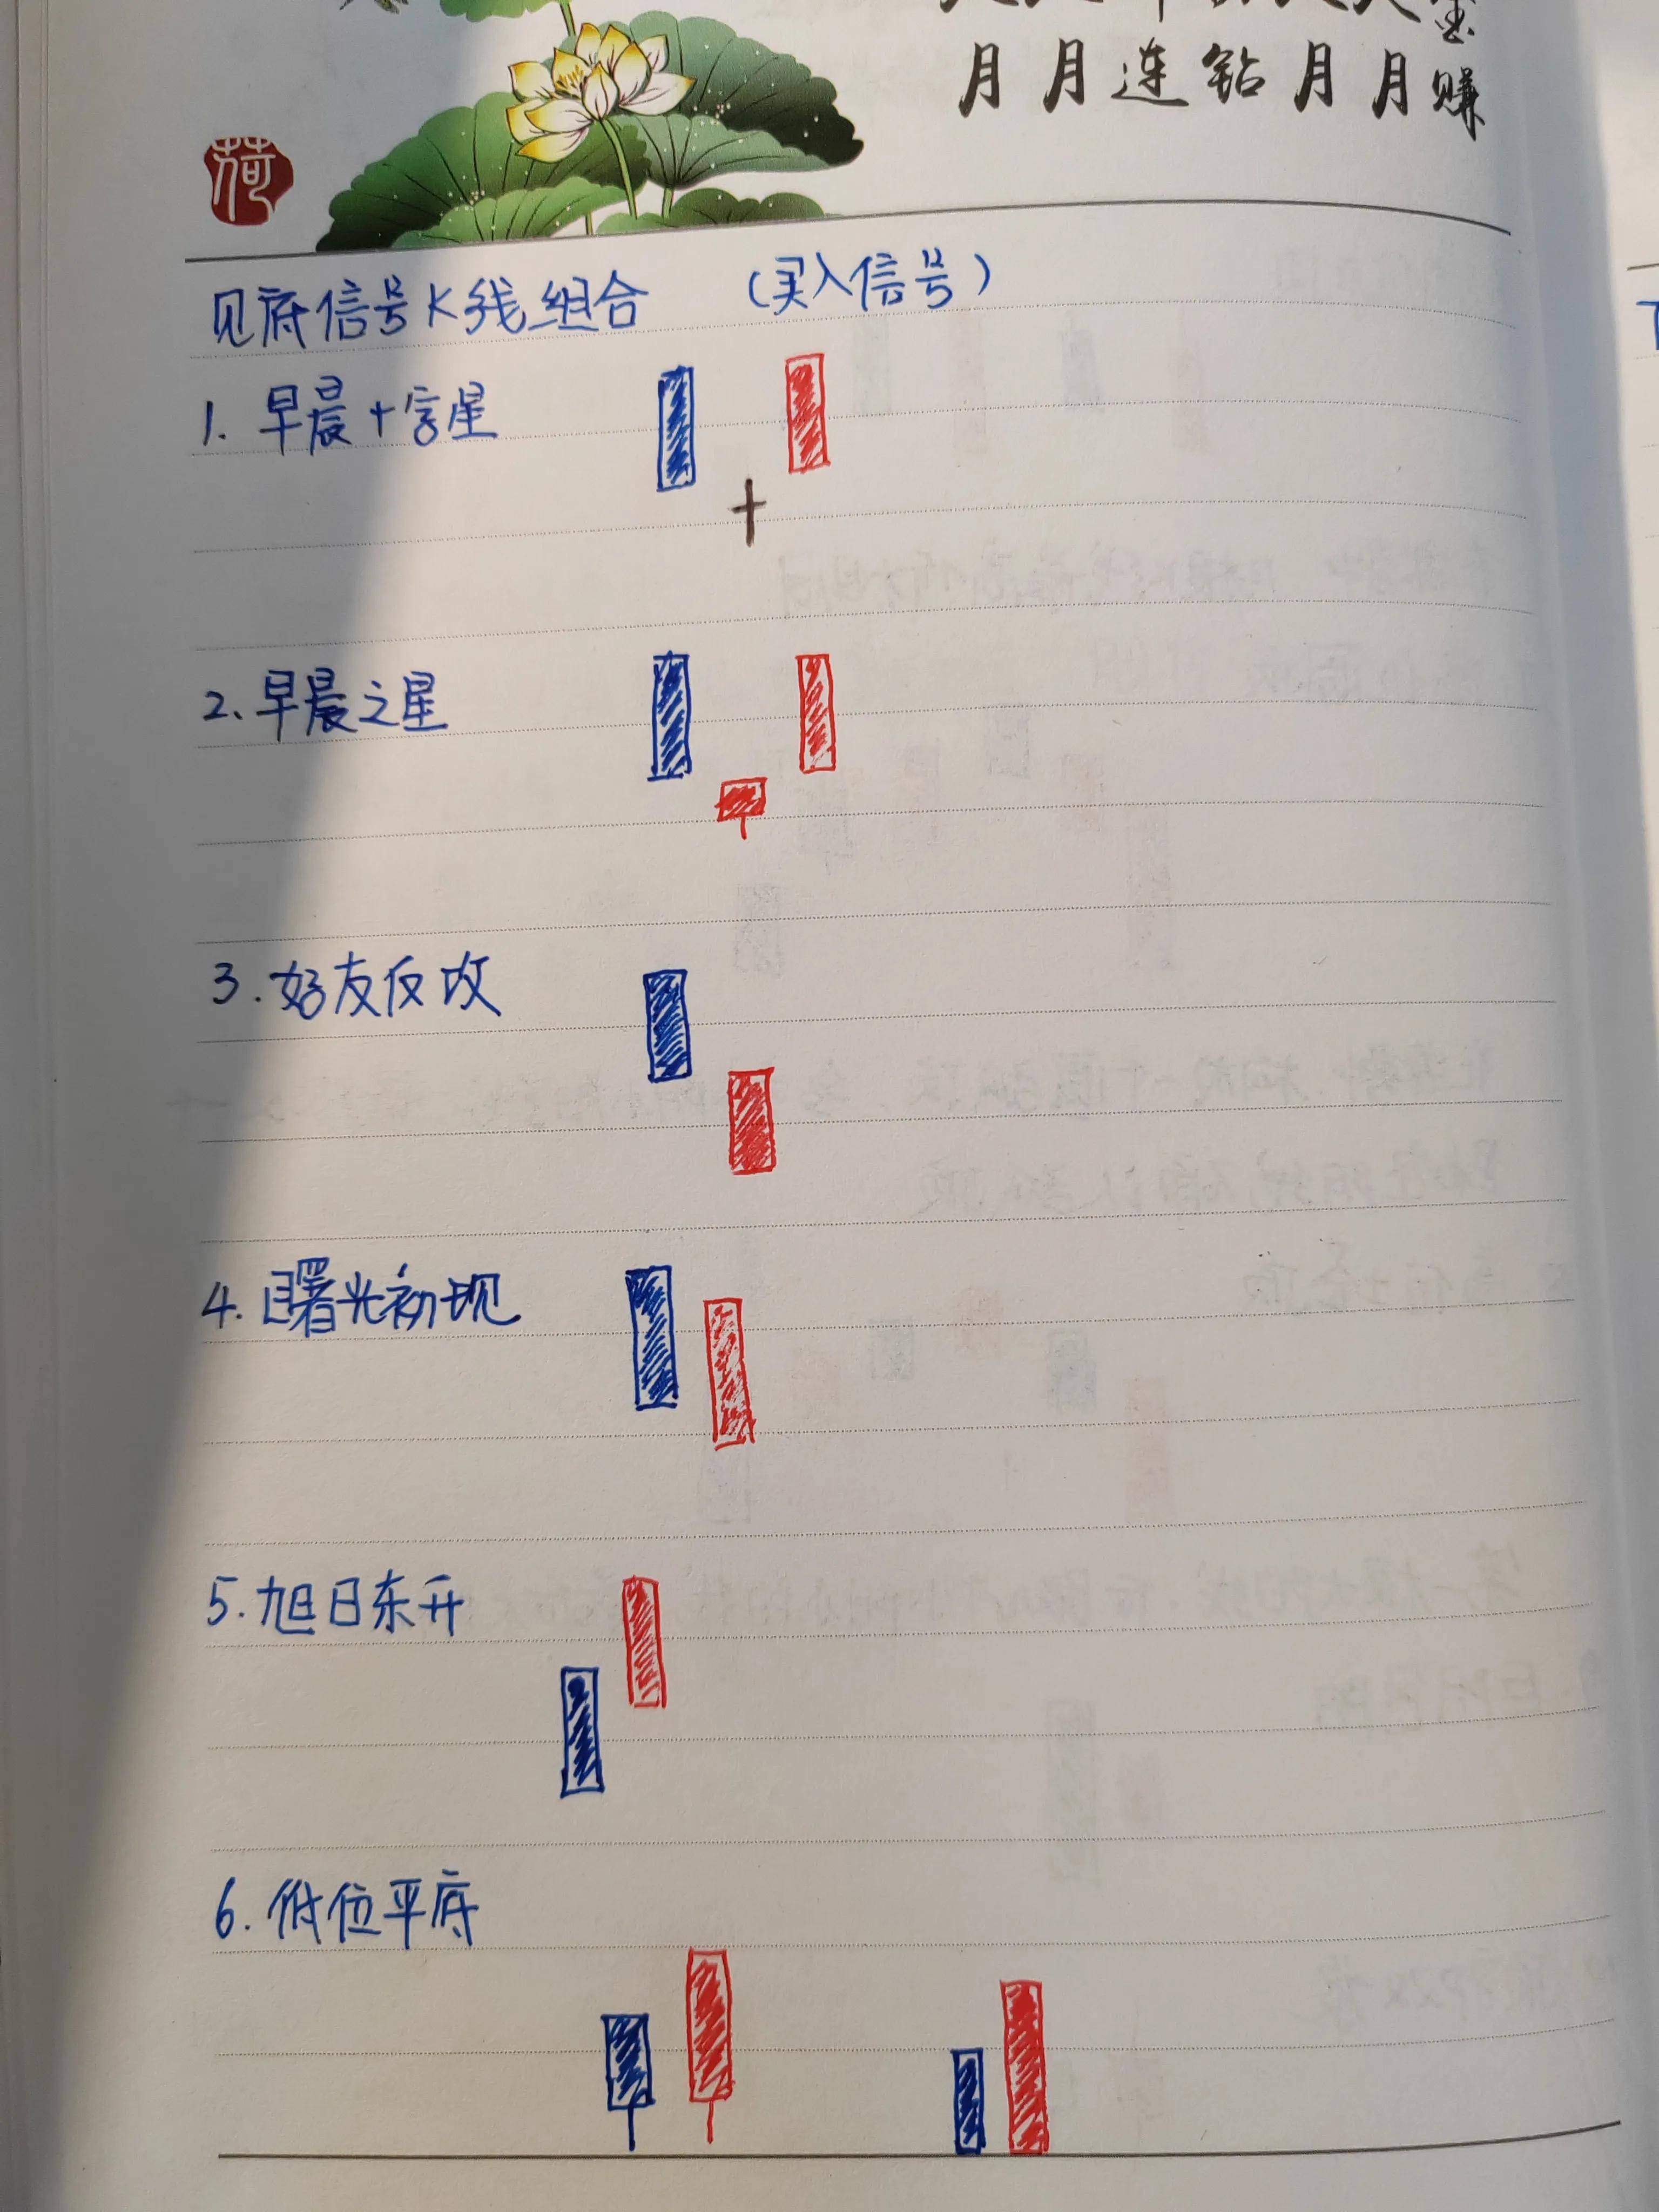 月月连钻月月赚
荷
见底信号K线组合 (买入信号)
1. 早晨十字星
2. 早晨之星
3. 好友反攻
4. 曙光初现
5. 旭日东升
6. 低位平底